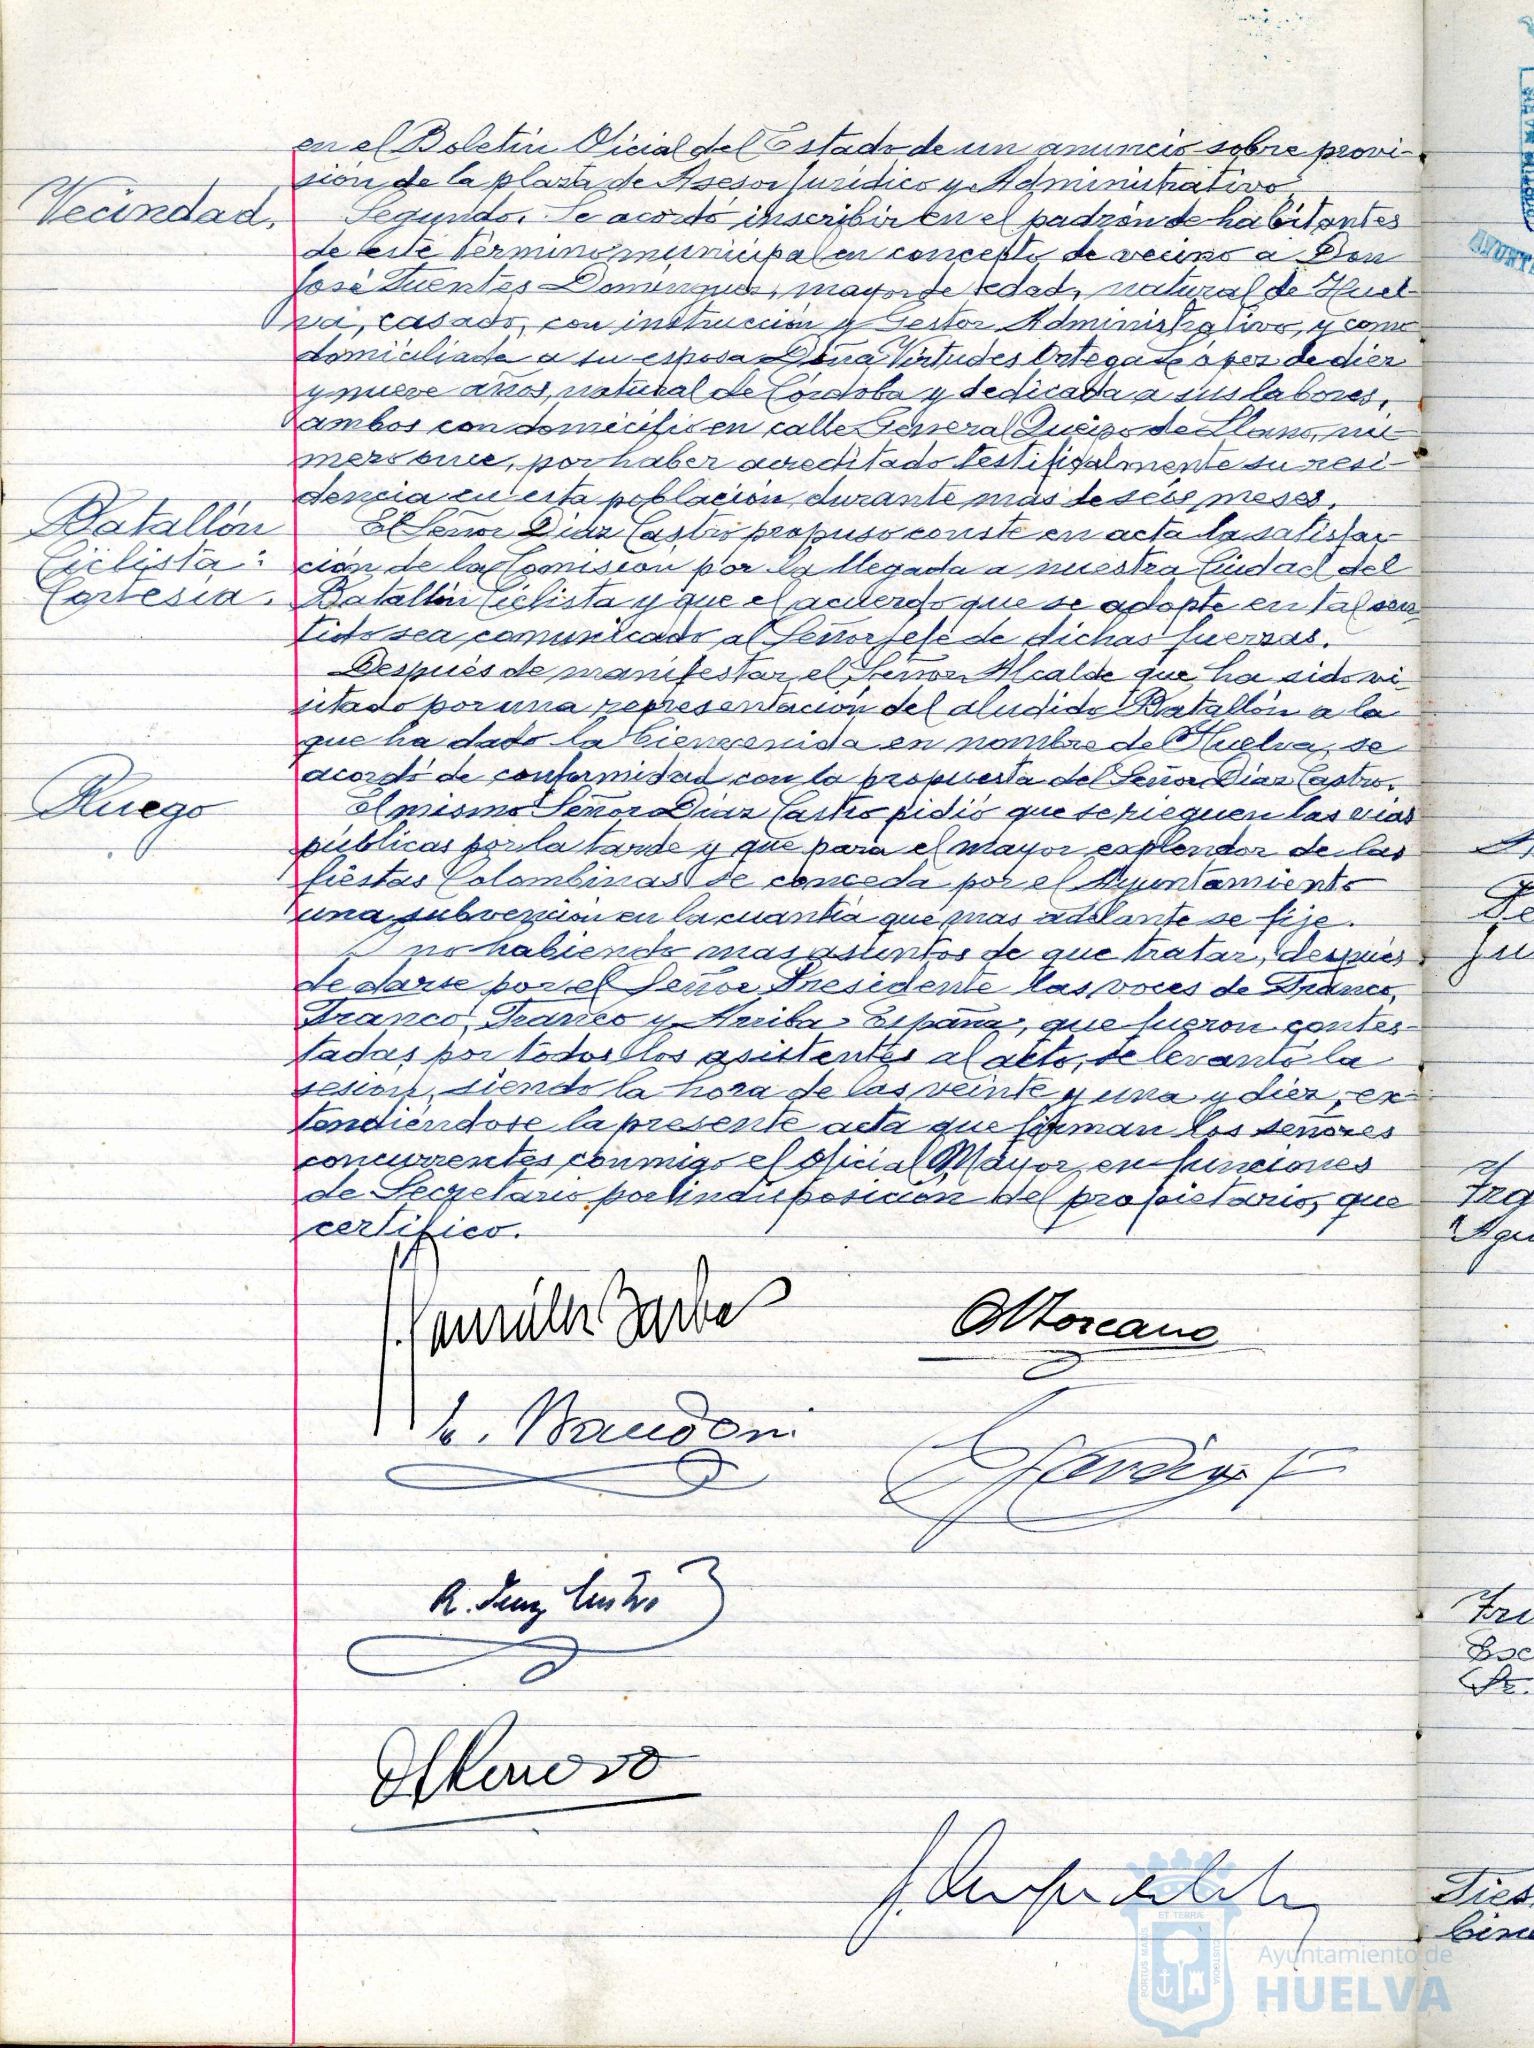 en el Boletín Oficial del Estado de un anuncio sobre provi-
sión de la plaza de Asesor Jurídico y Administrativo.
Vecindad.
Segundo. Se acordó inscribir en el padrón de habitantes
de este término municipal en concepto de vecino a Don
José Fuentes Domínguez, mayor de edad, natural de Huel-
va, casado, con instrucción y Gestor Administrativo, y como
domiciliada a su esposa Doña Virtudes Ortega López de diez
y nueve años, natural de Córdoba y dedicada a sus labores,
ambos con domicilio en calle General Queipo de Llano, nú-
mero once, por haber acreditado testifiealmente su resi-
dencia en esta población durante mas de seis meses.
Batallón
Ciclista:
Cortesía.
El Señor Díaz Castro propuso conste en acta la satisfac-
ción de la Comisión por la llegada a nuestra Ciudad del
Batallón Ciclista y que el acuerdo que se adopte en tal sen-
tido sea comunicado al Señor Jefe de dichas fuerzas.
Después de manifestar el Señor Alcalde que ha sido vi-
sitado por una representación del aludido Batallón a la
que ha dado la bienvenida en nombre de Huelva, se
acordó de conformidad con la propuesta del Señor Díaz Castro.
Ruego
El mismo Señor Díaz Castro pidió que se rieguen las vías
públicas por la tarde y que para el mayor esplendor de las
fiestas Colombinas se conceda por el Ayuntamiento
una subvención en la cuantía que mas adelante se fije.
Y no habiendo mas asuntos de que tratar, después
de darse por el Señor Presidente las voces de Franco,
Franco, Franco y Arriba España, que fueron contes-
tadas por todos los asistentes al acto, se levantó la
sesión, siendo la hora de las veinte y una y diez, ex-
tendiéndose la presente acta que firman los señores
concurrentes conmigo el Oficial Mayor, en funciones
de Secretario por indisposición del propietario, que
certifico.
J. González Barba
R. Díaz Castro
PORTUS MARIS
ET TERRAE
CUSTODIA
Ayuntamiento de
HUELVA